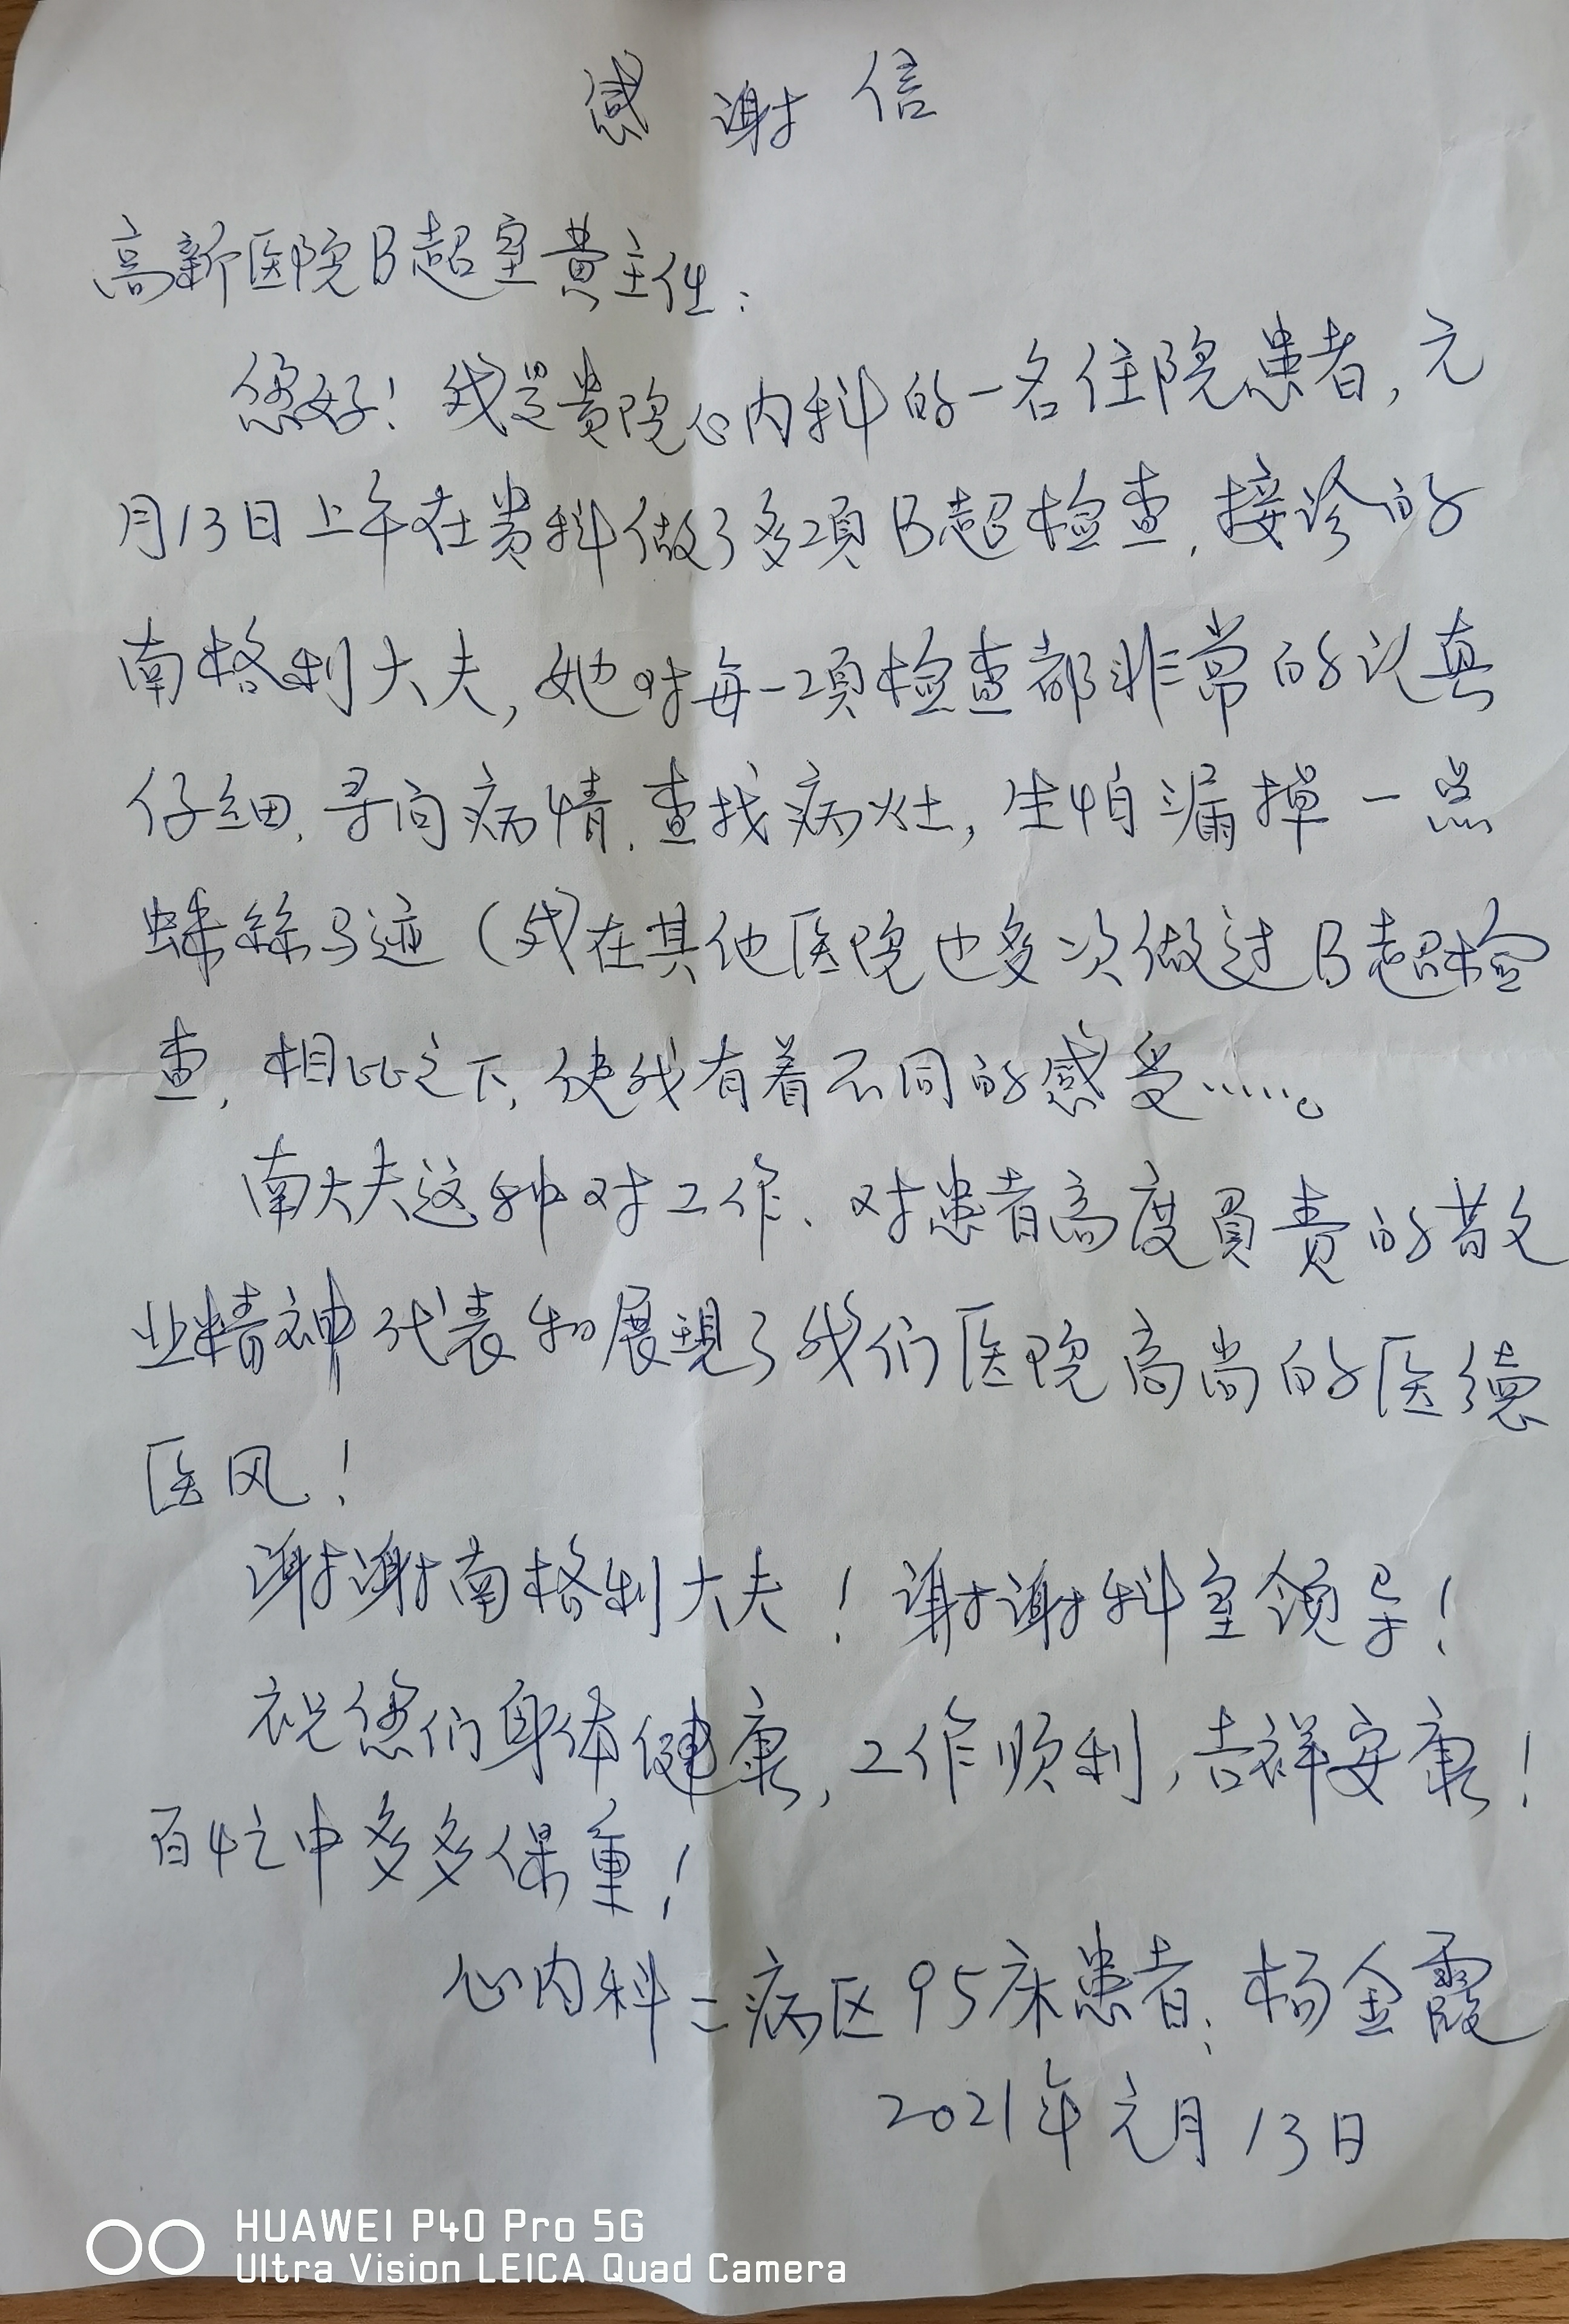 感谢信
高新医院B超室黄主任:
您好！我是贵院心内科的一名住院患者,元
月13日上午在贵科做了多项B超检查,接诊的
南格利大夫,她对每一项检查都非常的认真
仔细,寻问病情,查找病灶,生怕漏掉一点
蛛絲马迹(我在其他医院也多次做过B超检
查,相比之下,使我有着不同的感受……。
南大夫这种对工作、对患者高度負责的敬
业精神代表和展現了我们医院高尚的医德
医风！
谢谢南格利大夫！谢谢科室领导！
祝您们身体健康,工作顺利,吉祥安康！
百忙中多多保重！
心内科二病区95床患者:杨金霞
2021年元月13日
HUAWEI P40 Pro 5G
Ultra Vision LEICA Quad Camera